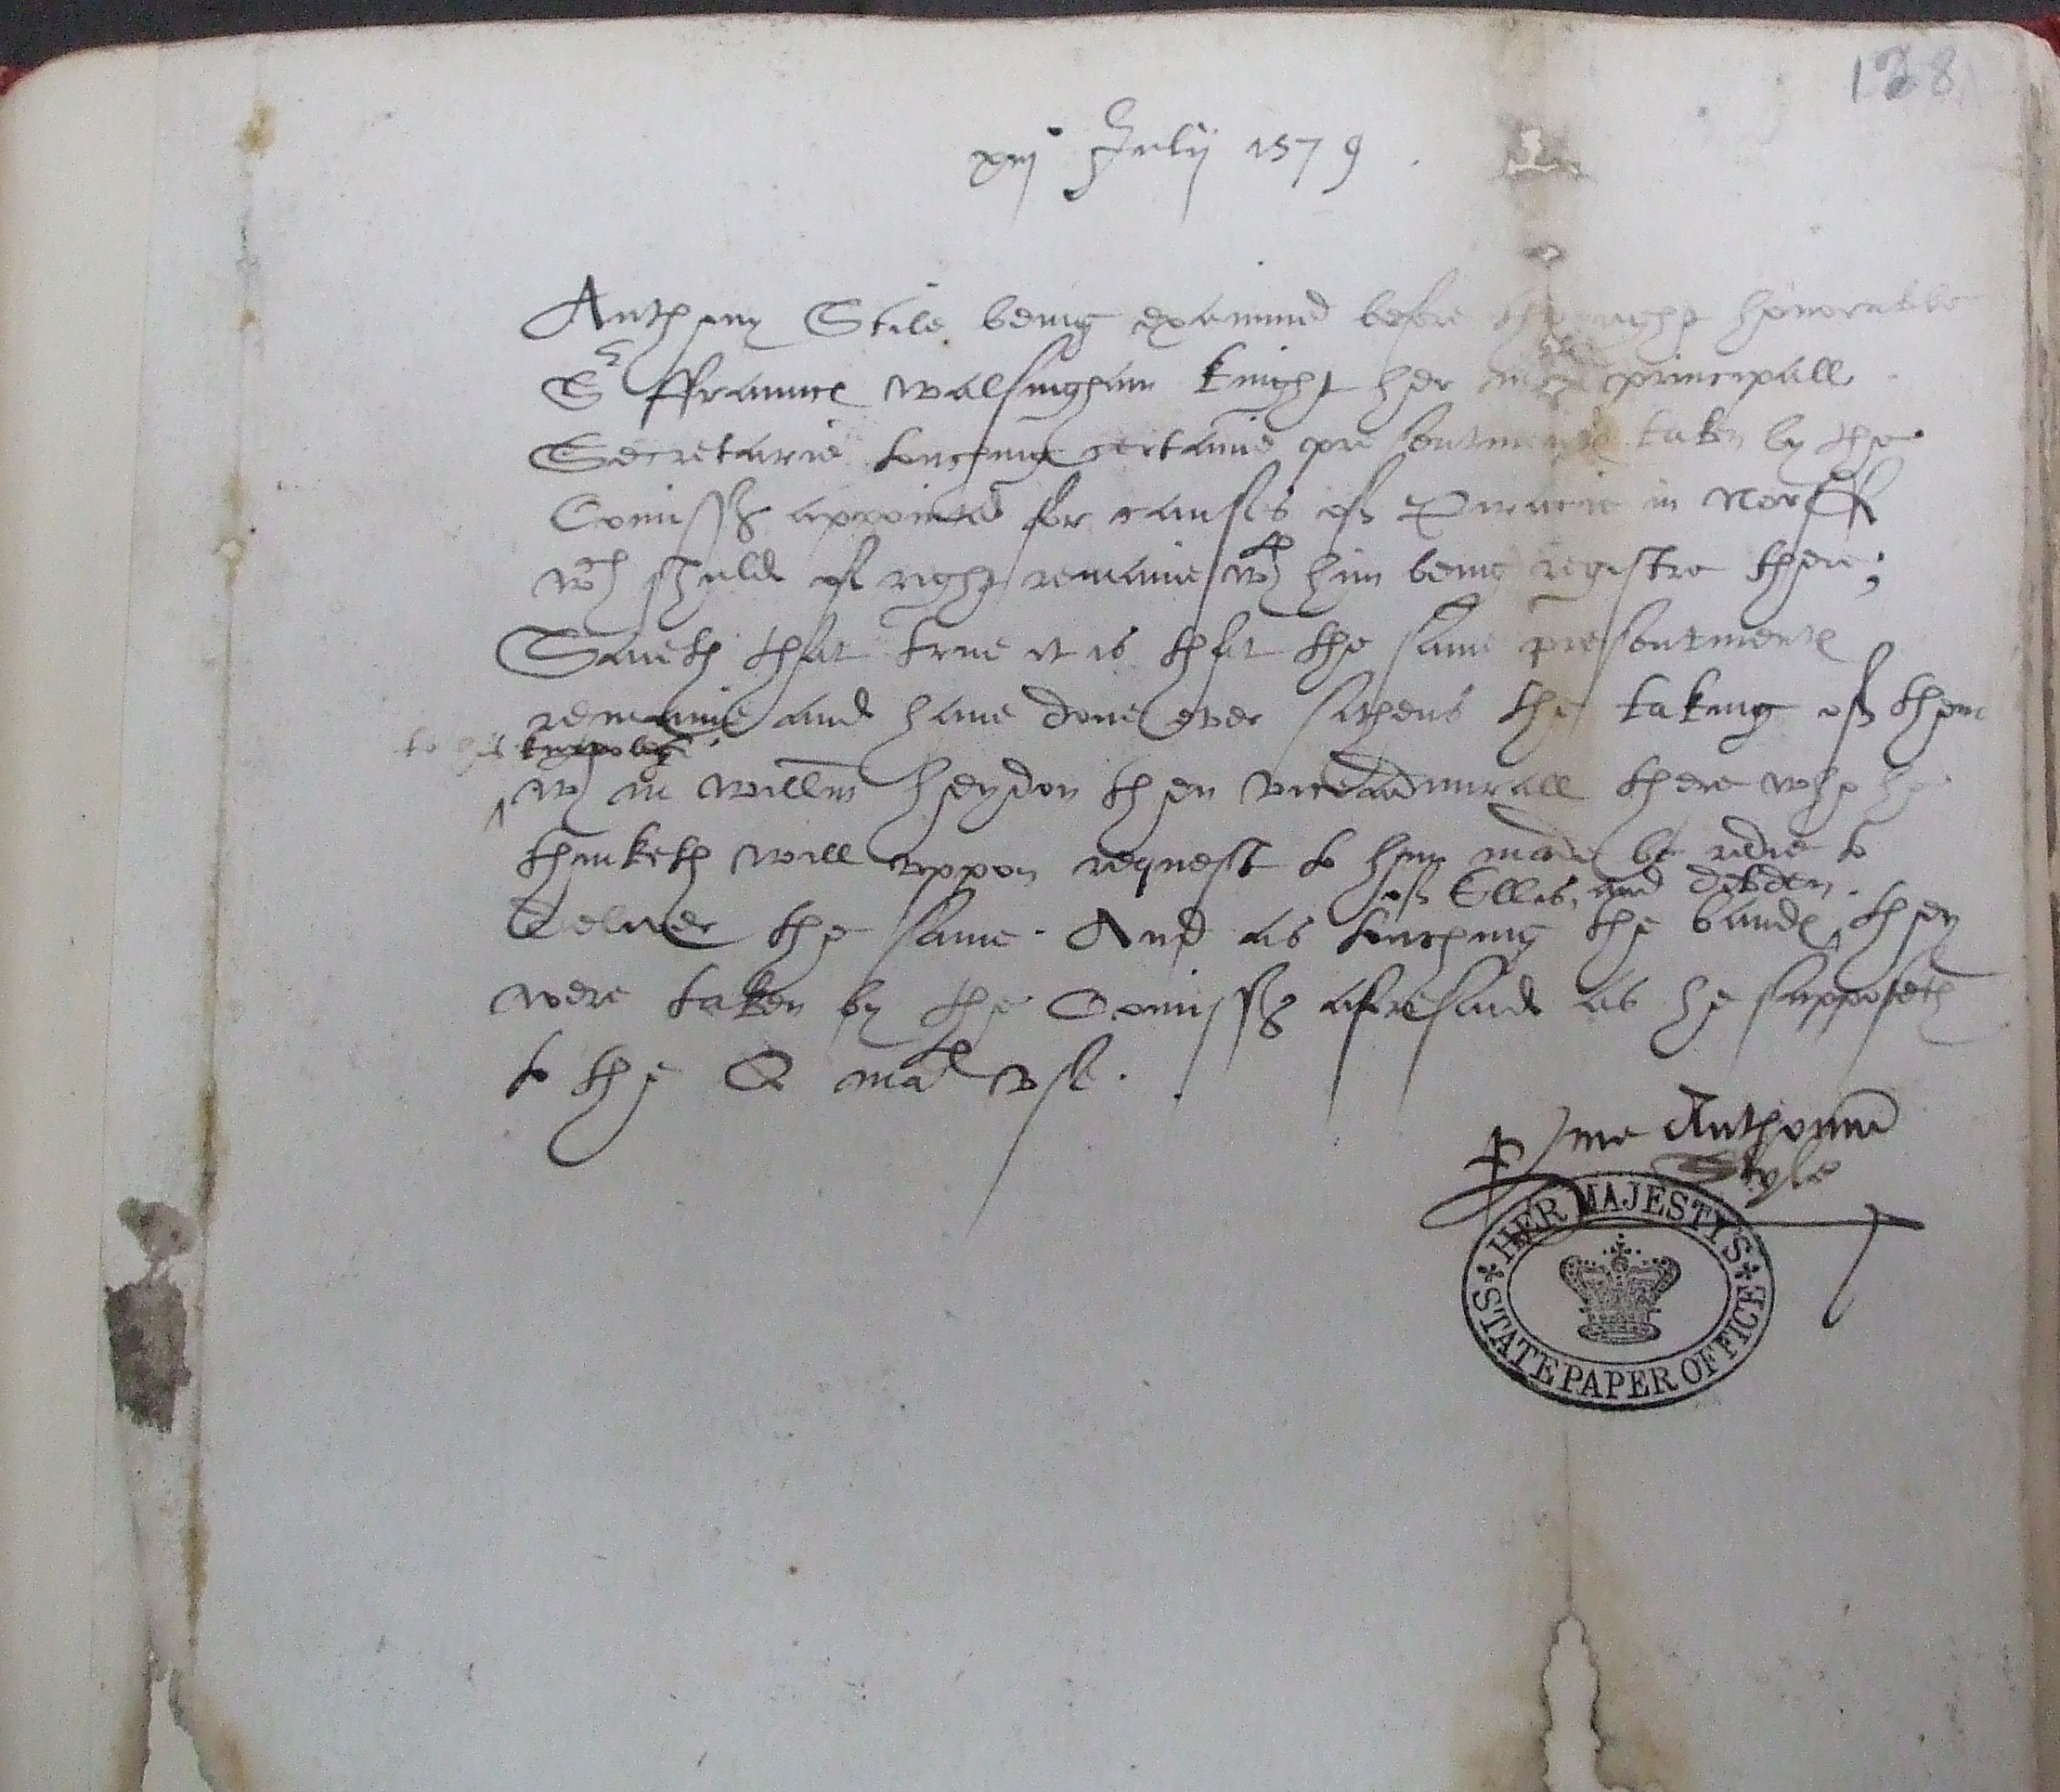 138
xiij Julij 1579
Anthony Stile being examined before the right honorable
Sr ffraunce Walsingham knight her ma principall
Secretarie touching certaine presentmentes taken by the
Comissrs appointed for causes of Piracie in Norff
wch shuld of right remaine wth him being registre there;
Saieth that true it is that the same presentmentes
remaine and haue done ever sithens the taking of them
to his knowledge
wth mr Willm heydon then viceadmirall there who he
thinketh will vppon request to him made be redie to
of Ellis, and dibden.
deliver the same. And as touching the bandes they
were taken by the Comissrs aforesaid as he supposeth
to the Q mates vse.
p me Anthonim
Style
HER MAJESTYS
STATE PAPER OFFICE